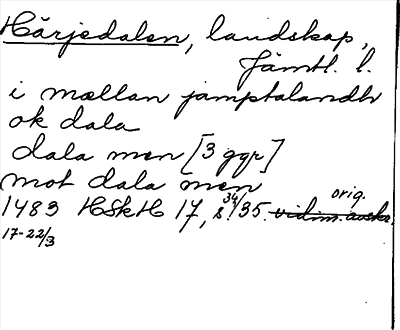 Härjedalen, landskap,
Jämtl. l.
i mællan jamptalandh
ok dala
dala men [3 ggr]
mot dala men
orig.
1483 HSkH 17, s. 34/35. vidim. avskr.
17-22/3